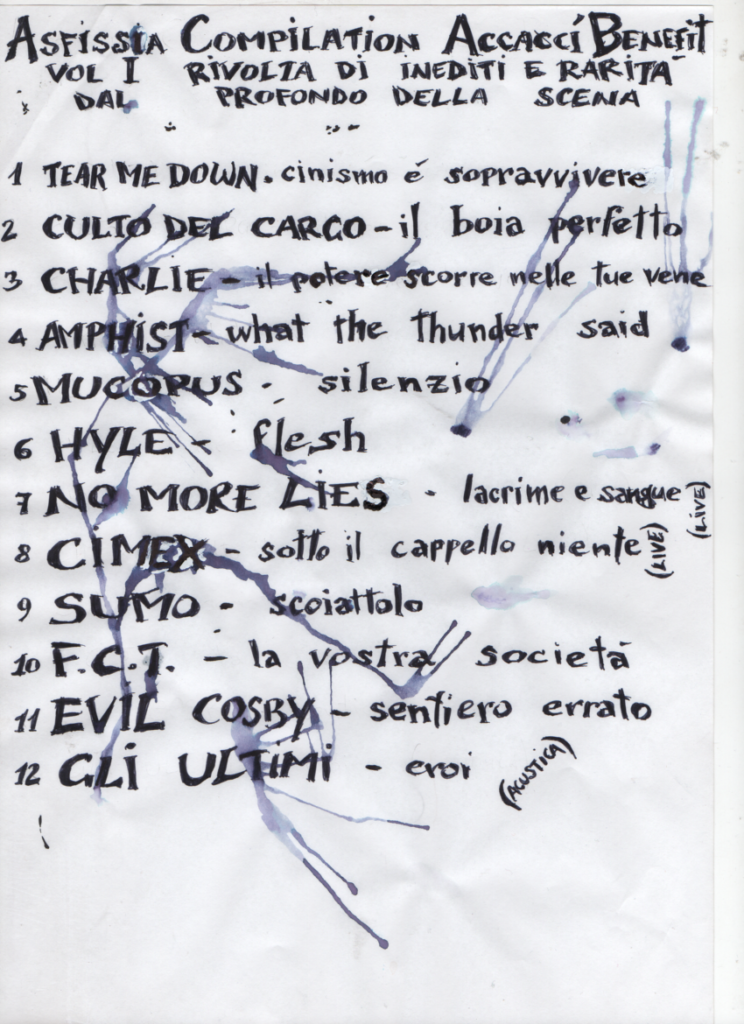 ASFISSIA COMPILATION ACCACCÍ BENEFIT
VOL I RIVOLTA DI INEDITI E RARITÀ
DAL PROFONDO DELLA SCENA
1 TEAR ME DOWN. cinismo é sopravvivere
2 CULTO DEL CARGO - il boia perfetto
3 CHARLIE - il potere scorre nelle tue vene
4 AMPHIST - what the thunder said
5 MUCOPUS - silenzio
6 HYLE - flesh
7 NO MORE LIES - lacrime e sangue (LIVE)
8 CIMEX - sotto il cappello niente (LIVE)
9 SUMO - scoiattolo
10 F.C.T. - la vostra società
11 EVIL COSBY - sentiero errato
12 GLI ULTIMI - eroi (ACUSTICA)